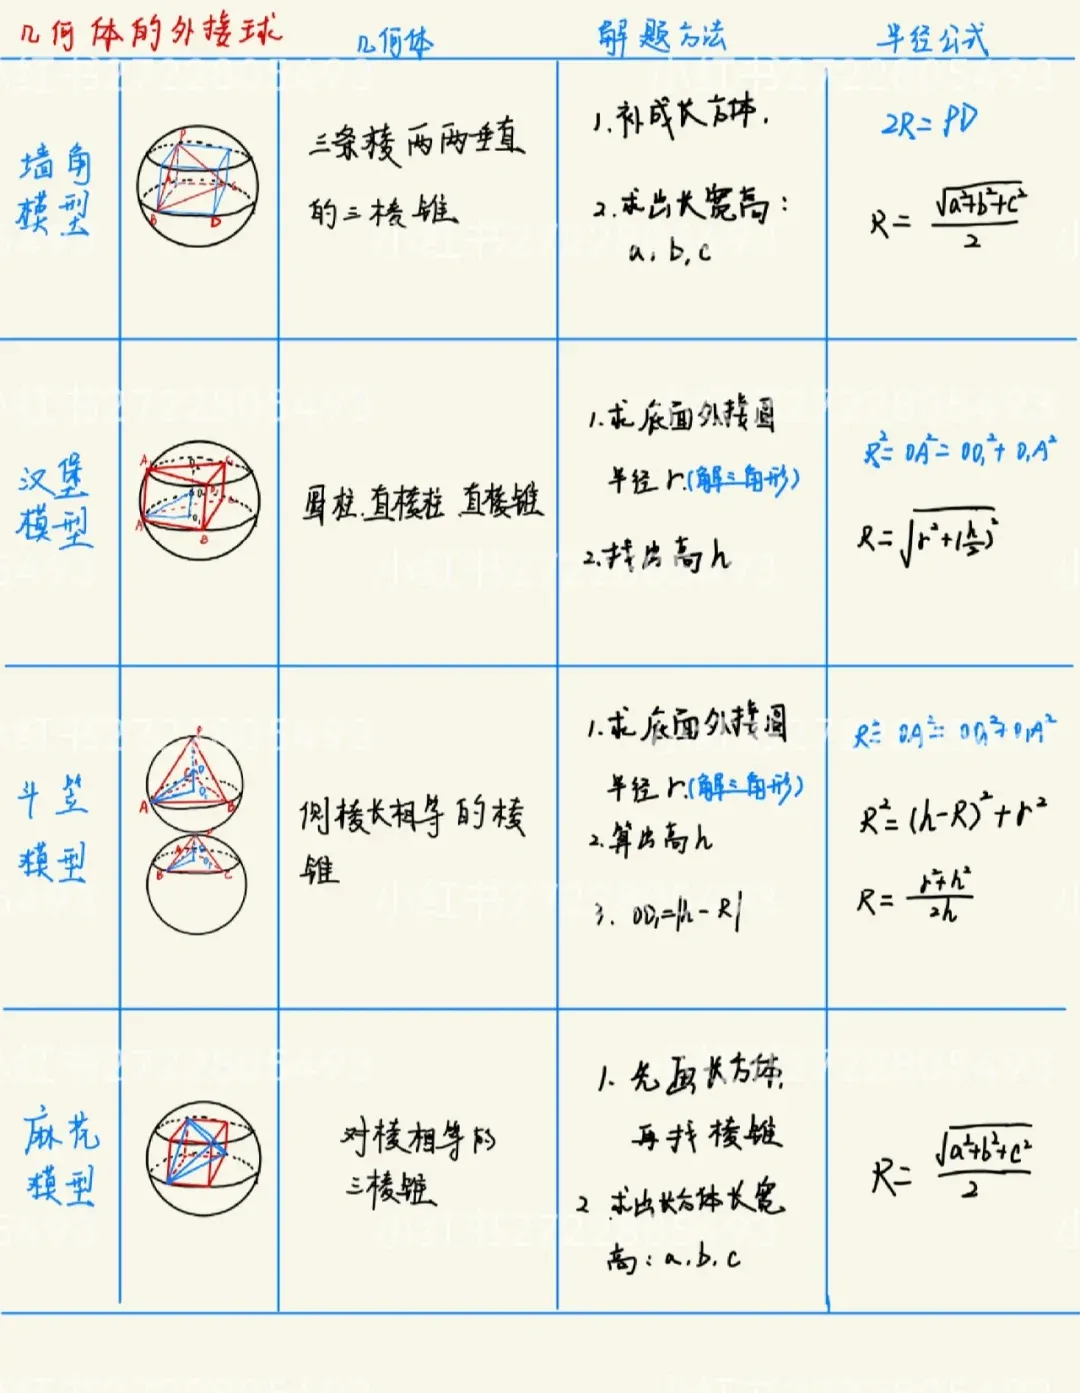 几何体的外接球
几何体
解题方法
半径公式
墙角
模型
三条棱两两垂直
的三棱锥
1.补成长方体.
2.求出长宽高:
a, b, c
2R=PD
R= √(a²+b²+c²)/2
汉堡
模型
圆柱.直棱柱.直棱锥
1.求底面外接圆
半径r.(解三角形)
2.找出高h
R²=OA²=OO₁²+O₁A²
R=√(r²+(h/2)²)
斗笠
模型
侧棱长相等的棱
锥
1.求底面外接圆
半径r.(解三角形)
2.算出高h
3. OO₁=|h-R|
R²=OA²=OO₁²+O₁A²
R²=(h-R)²+r²
R= (r²+h²)/2h
麻花
模型
对棱相等的
三棱锥
1. 先画长方体,
再找棱锥
2 求出长方体长宽
高: a.b.c
R= √(a²+b²+c²)/2
小红书2722805493